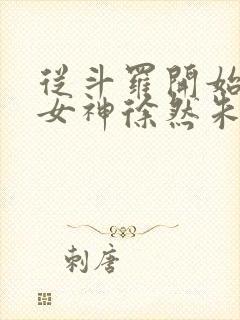 從斗羅開始
女神徐然朱
刺唐